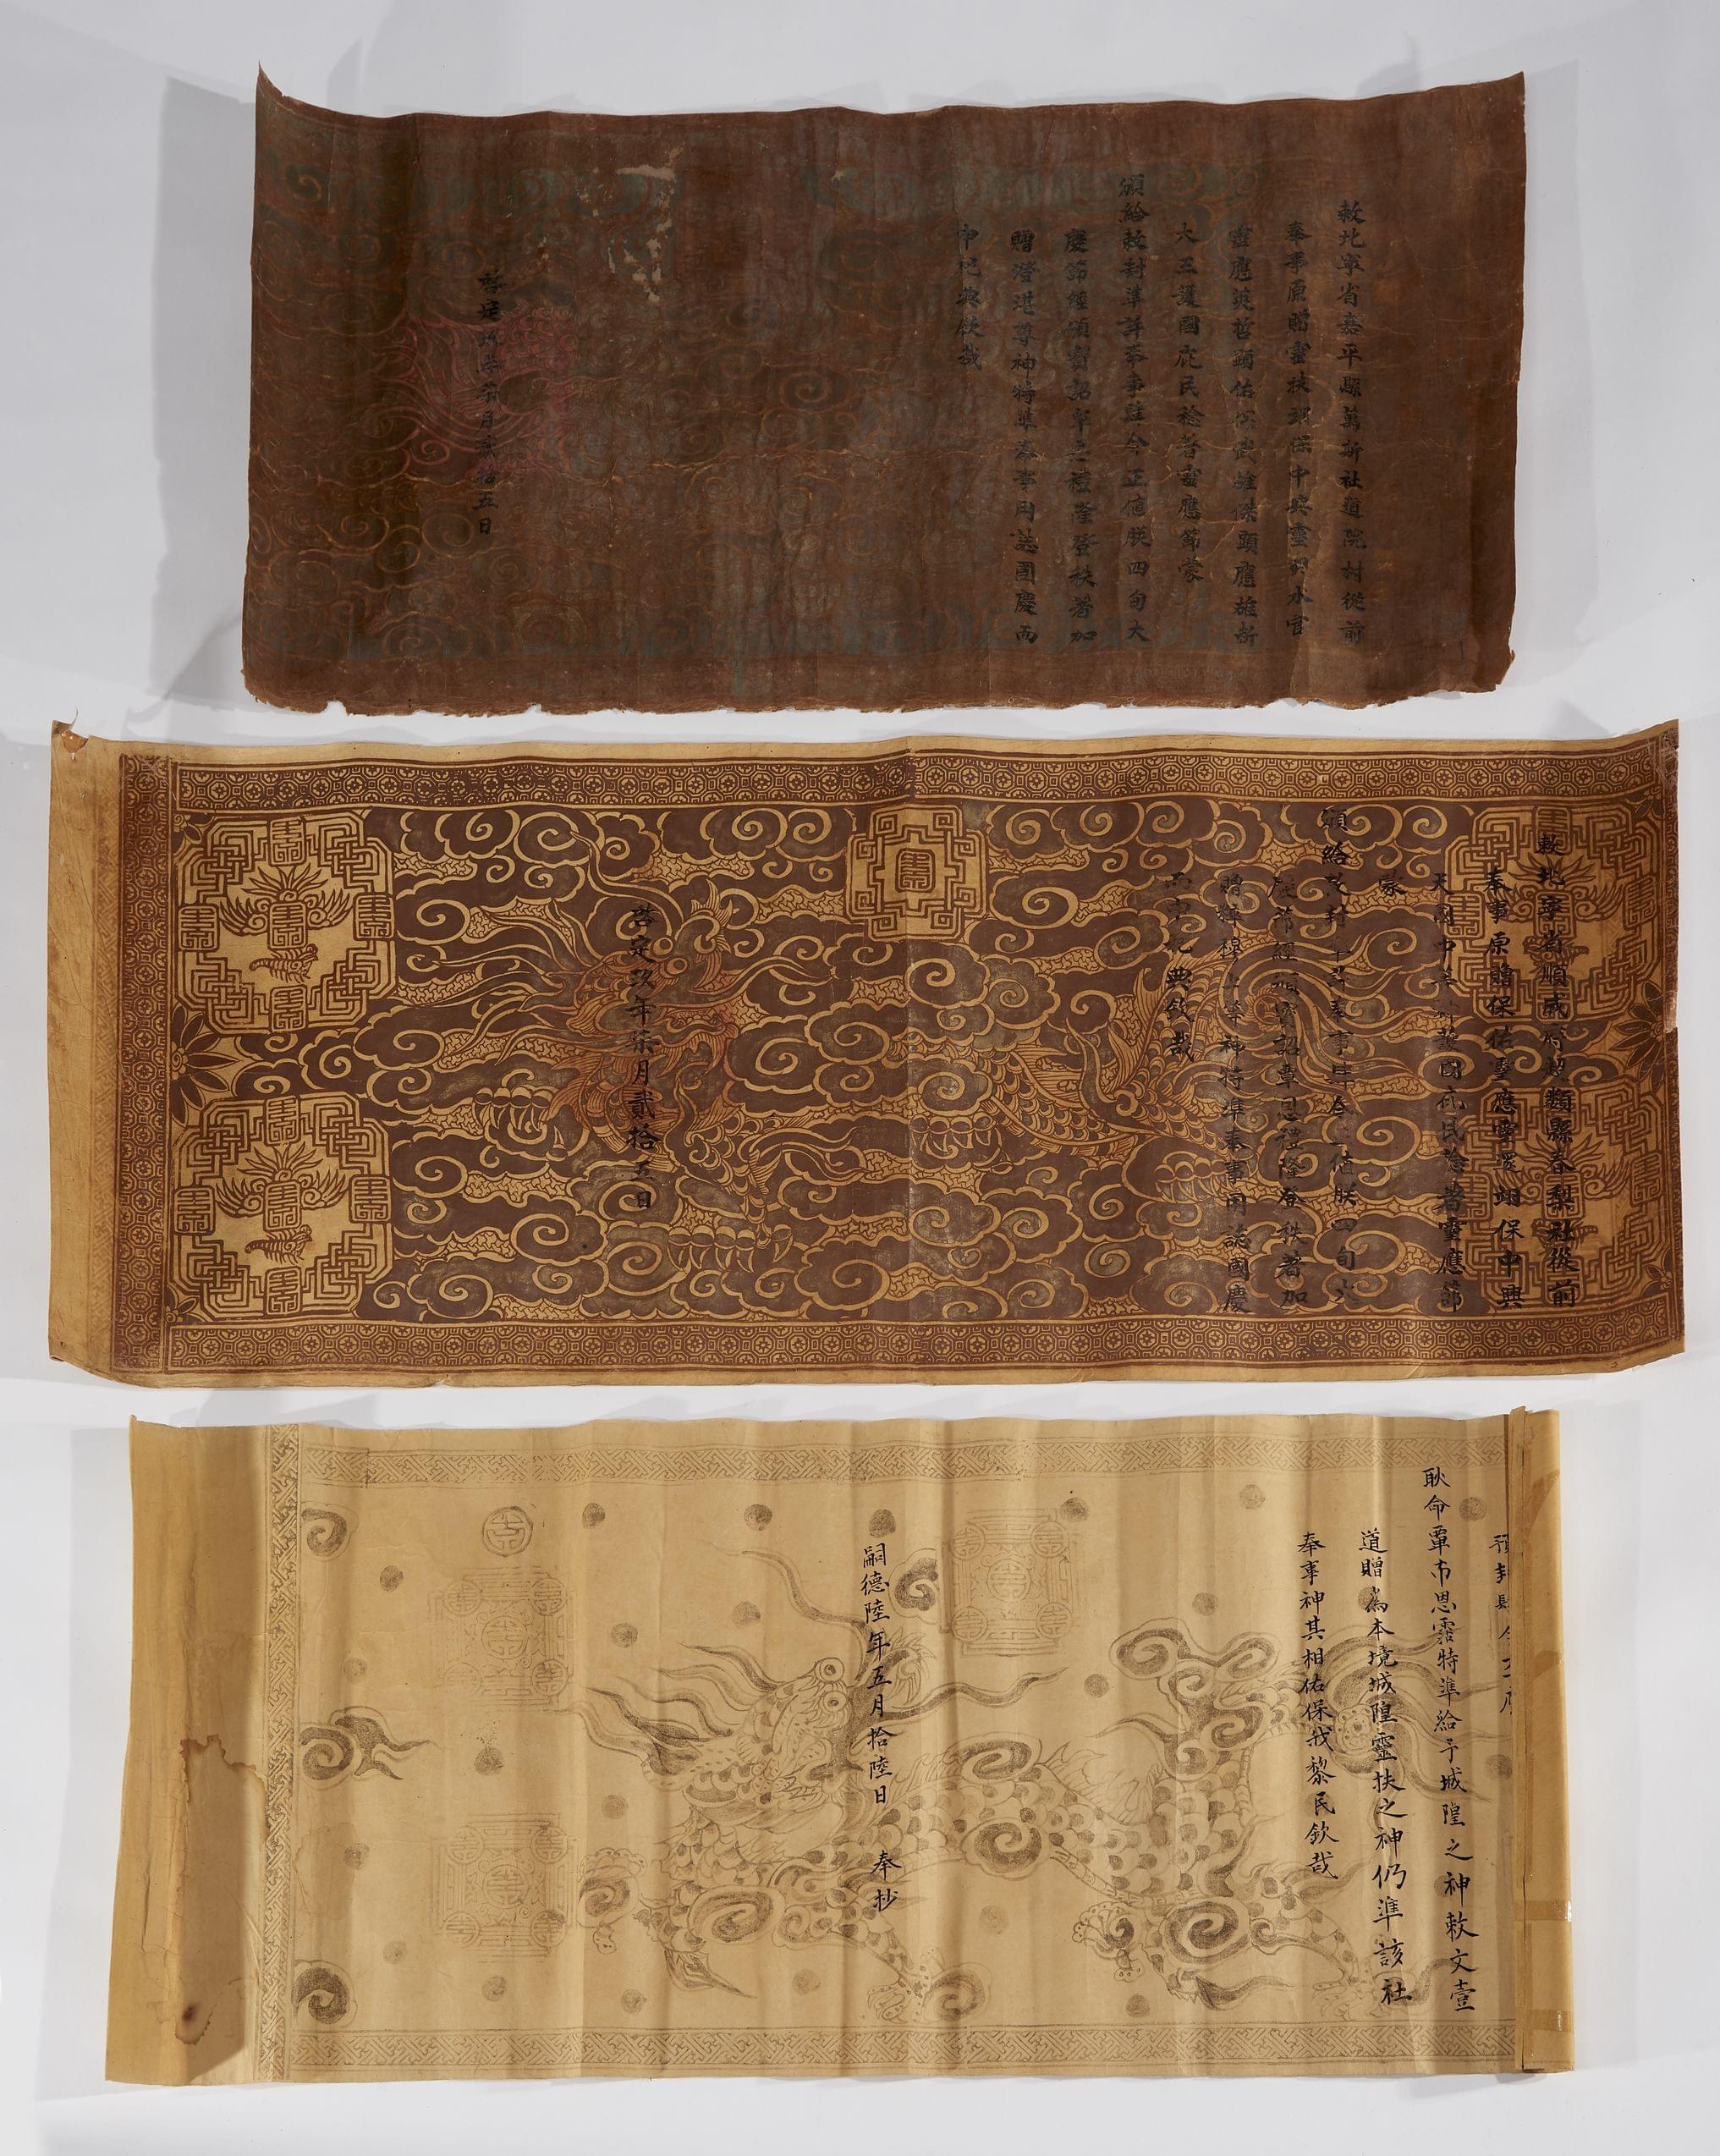 敕北寧省嘉平縣萬斯社道院村從前
奉事原贈靈扶翊保中興靈 水官
靈應英哲顯佑 武雄傑顯應雄斷
大王護國庇民稔著靈應節蒙
頒給敕封準許奉事肆今正值朕四旬大
慶節經頒寶詔覃恩禮隆登秩著加
贈澄湛尊神特準奉事用誌國慶而
申祀典欽哉
啓定玖年柒月貳拾五日
敕北寧省順成府超類縣春梨社從前
奉事原贈保佑靈應 翊保中興
護國庇民稔著靈應節
蒙
頒給 封準許奉事肆今 值朕四旬大
慶節經頒寶詔覃恩禮隆登秩著加
贈 上等神特準奉事用誌國慶
而申祀典欽哉
啓定玖年柒月貳拾五日
耿命覃布恩霑特準給予城隍之神敕文壹
道贈為本境城隍靈扶之神仍準該社
奉事神其相佑保我黎民欽哉
嗣德陸年五月拾陸日 奉抄